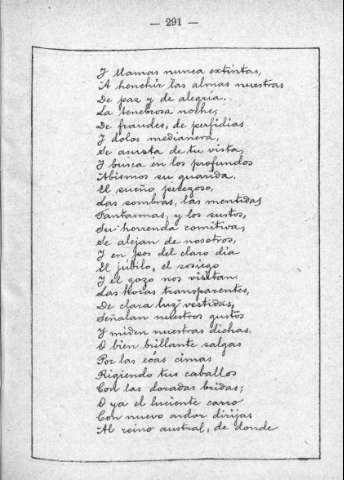 — 291 —
Y llamas nunca extintas,
A henchir las almas nuestras
De paz y de alegría.
La tenebrosa noche,
De fraudes, de perfidias
Y dolos medianera,
Se asusta de tu vista,
Y busca en los profundos
Abismos su guarida.
El sueño perezoso,
Las sombras, las mentidas
Fantasmas, y los sustos,
Su horrenda comitiva,
Se alejan de nosotros,
Y en pos del claro día
El júbilo, el sosiego
Y el gozo nos visitan.
Las Horas transparentes,
De clara luz vestidas,
Señalan nuestros gustos
Y miden nuestras dichas.
O bien brillante salgas
Por las eoas cimas
Rigiendo tus caballos
Con las doradas bridas;
O ya el luciente carro
Con nuevo ardor dirijas
Al reino austral, de donde